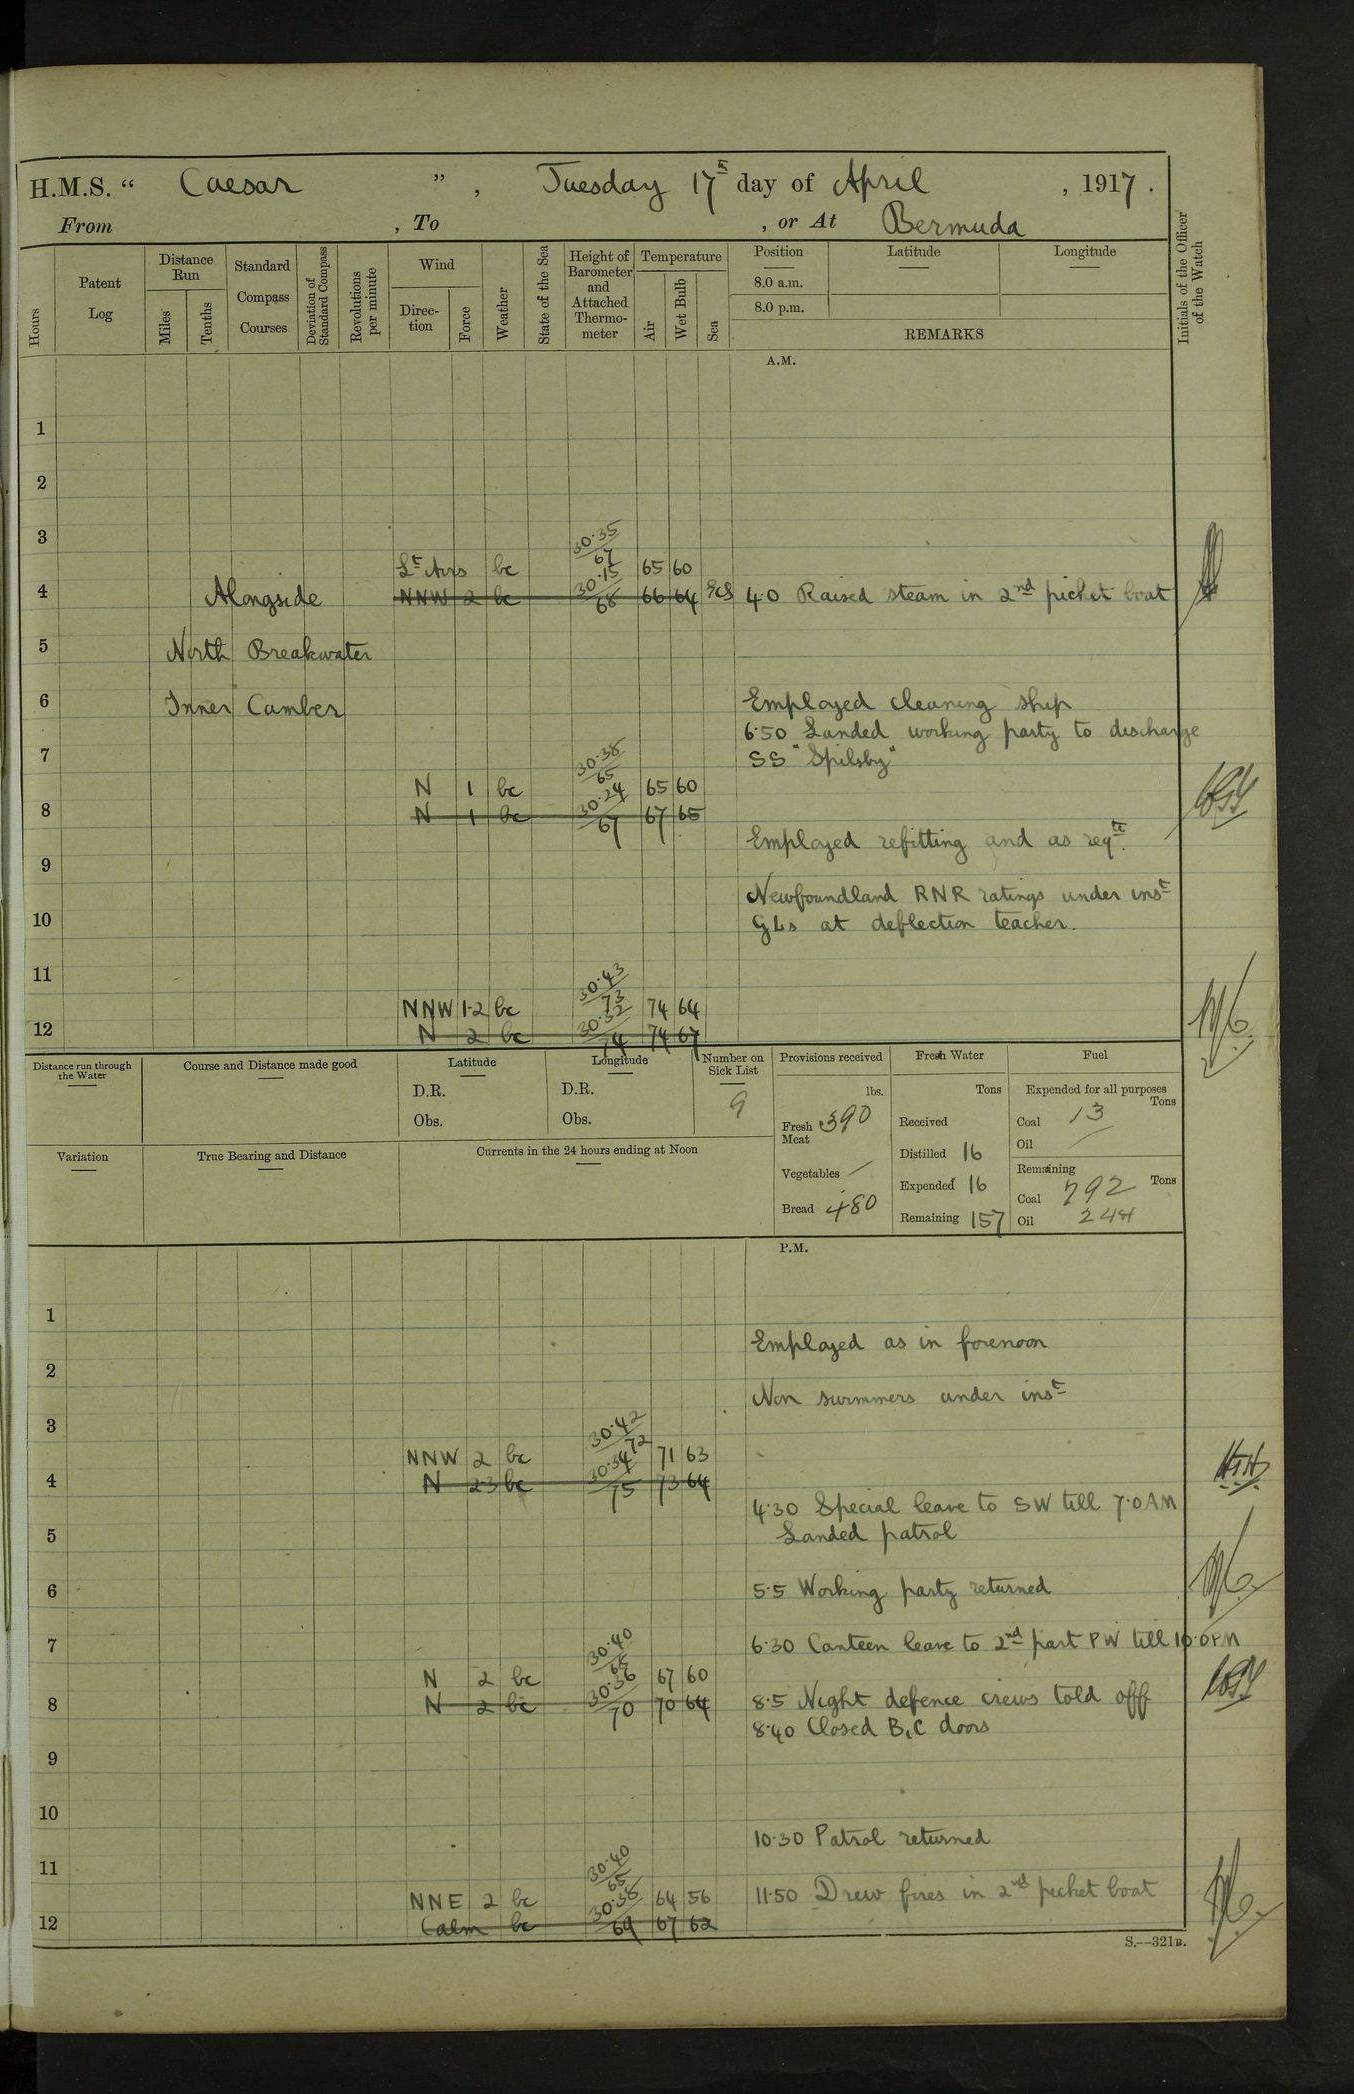 H.M.S. “ Caesar ” , Tuesday 17th day of April , 1917 .
From , To , or At Bermuda
Hours
Patent Log
Distance Run
Miles
Tenths
Standard Compass Courses
Deviation of Standard Compass
Revolutions per minute
Wind
Direction
Force
Weather
State of the Sea
Height of Barometer and Attached Thermometer
Temperature
Air
Wet Bulb
Sea
Position
8.0 a.m.
8.0 p.m.
Latitude
Longitude
REMARKS
Initials of the Officer of the Watch
A.M.
1
2
3
30.35
67
Lt Airs bc 65 60
4 Alongside NNW 2 bc 30.15 68 66 64 4.0 Raised steam in 2nd picket boat
5 North Breakwater
6 Inner Camber Employed cleaning ship
6.50 Landed working party to discharge
7 SS "Spilsby"
30.38
65
N 1 bc 65 60
8 N 1 bc 30.24 67 67 65
Employed refitting and as reqte.
9
Newfoundland RNR ratings under inst
10 GLs at deflection teacher.
11
30.43
73
NNW 1-2 bc 74 64
12 N 2 bc 30.32 74 74 67
Distance run through the Water
Course and Distance made good
Latitude
D.R.
Obs.
Longitude
D.R.
Obs.
Number on Sick List
9
Provisions received
lbs.
Fresh Meat 390
Vegetables —
Bread 480
Fresh Water
Tons
Received
Distilled 16
Expended 16
Remaining 157
Fuel
Expended for all purposes
Tons
Coal 13
Oil —
Remaining
Tons
Coal 792
Oil 244
Variation
True Bearing and Distance
Currents in the 24 hours ending at Noon
P.M.
1
Employed as in forenoon
2
Non swimmers under inst
3
30.42
72
NNW 2 bc 71 63
4 N 2-3 bc 30.34 75 73 64
4.30 Special leave to SW till 7.0 AM
5 Landed patrol
6 5.5 Working party returned
7 6.30 Canteen leave to 2nd part PW till 10.0 PM
30.40
68
N 2 bc 67 60
8 N 2 bc 30.36 70 70 64 8.5 Night defence crews told off
8.40 Closed B, C doors
9
10
10.30 Patrol returned
11
30.40
65
NNE 2 bc 64 56 11.50 Drew fires in 2nd picket boat
12 Calm bc 30.38 69 67 62
S.—321B.